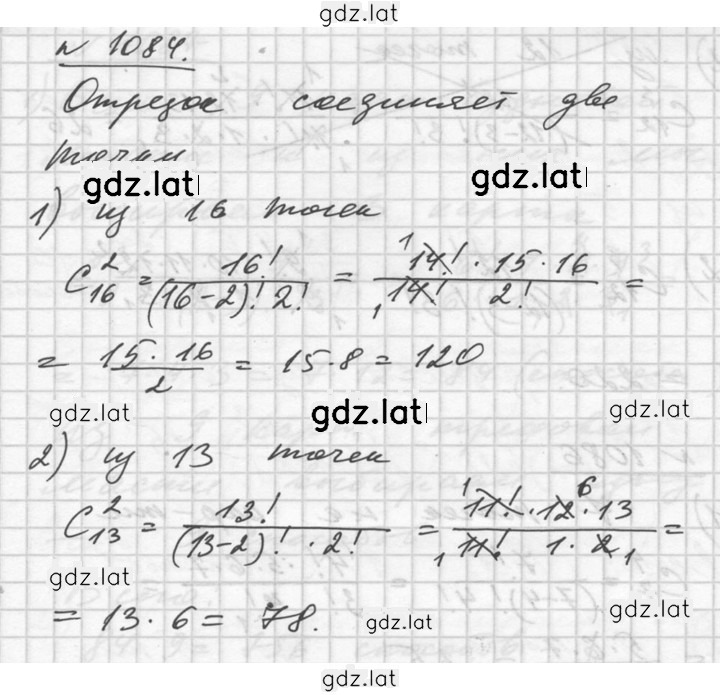 gdz.lat
№ 1084.
Отрезок соединяет две
точки
gdz.lat gdz.lat
1) из 16 точек
C²₁₆ = 16! / (16-2)! 2! = ¹14! · 15 · 16 / ₁14! 2! =
= 15 · 16 / 2 = 15 · 8 = 120
gdz.lat gdz.lat gdz.lat
2) из 13 точек
C²₁₃ = 13! / (13-2)! · 2! = ¹11! · 12⁶ · 13 / ₁11! 1 · 2₁ =
gdz.lat
= 13 · 6 = 78.
gdz.lat gdz.lat
gdz.lat